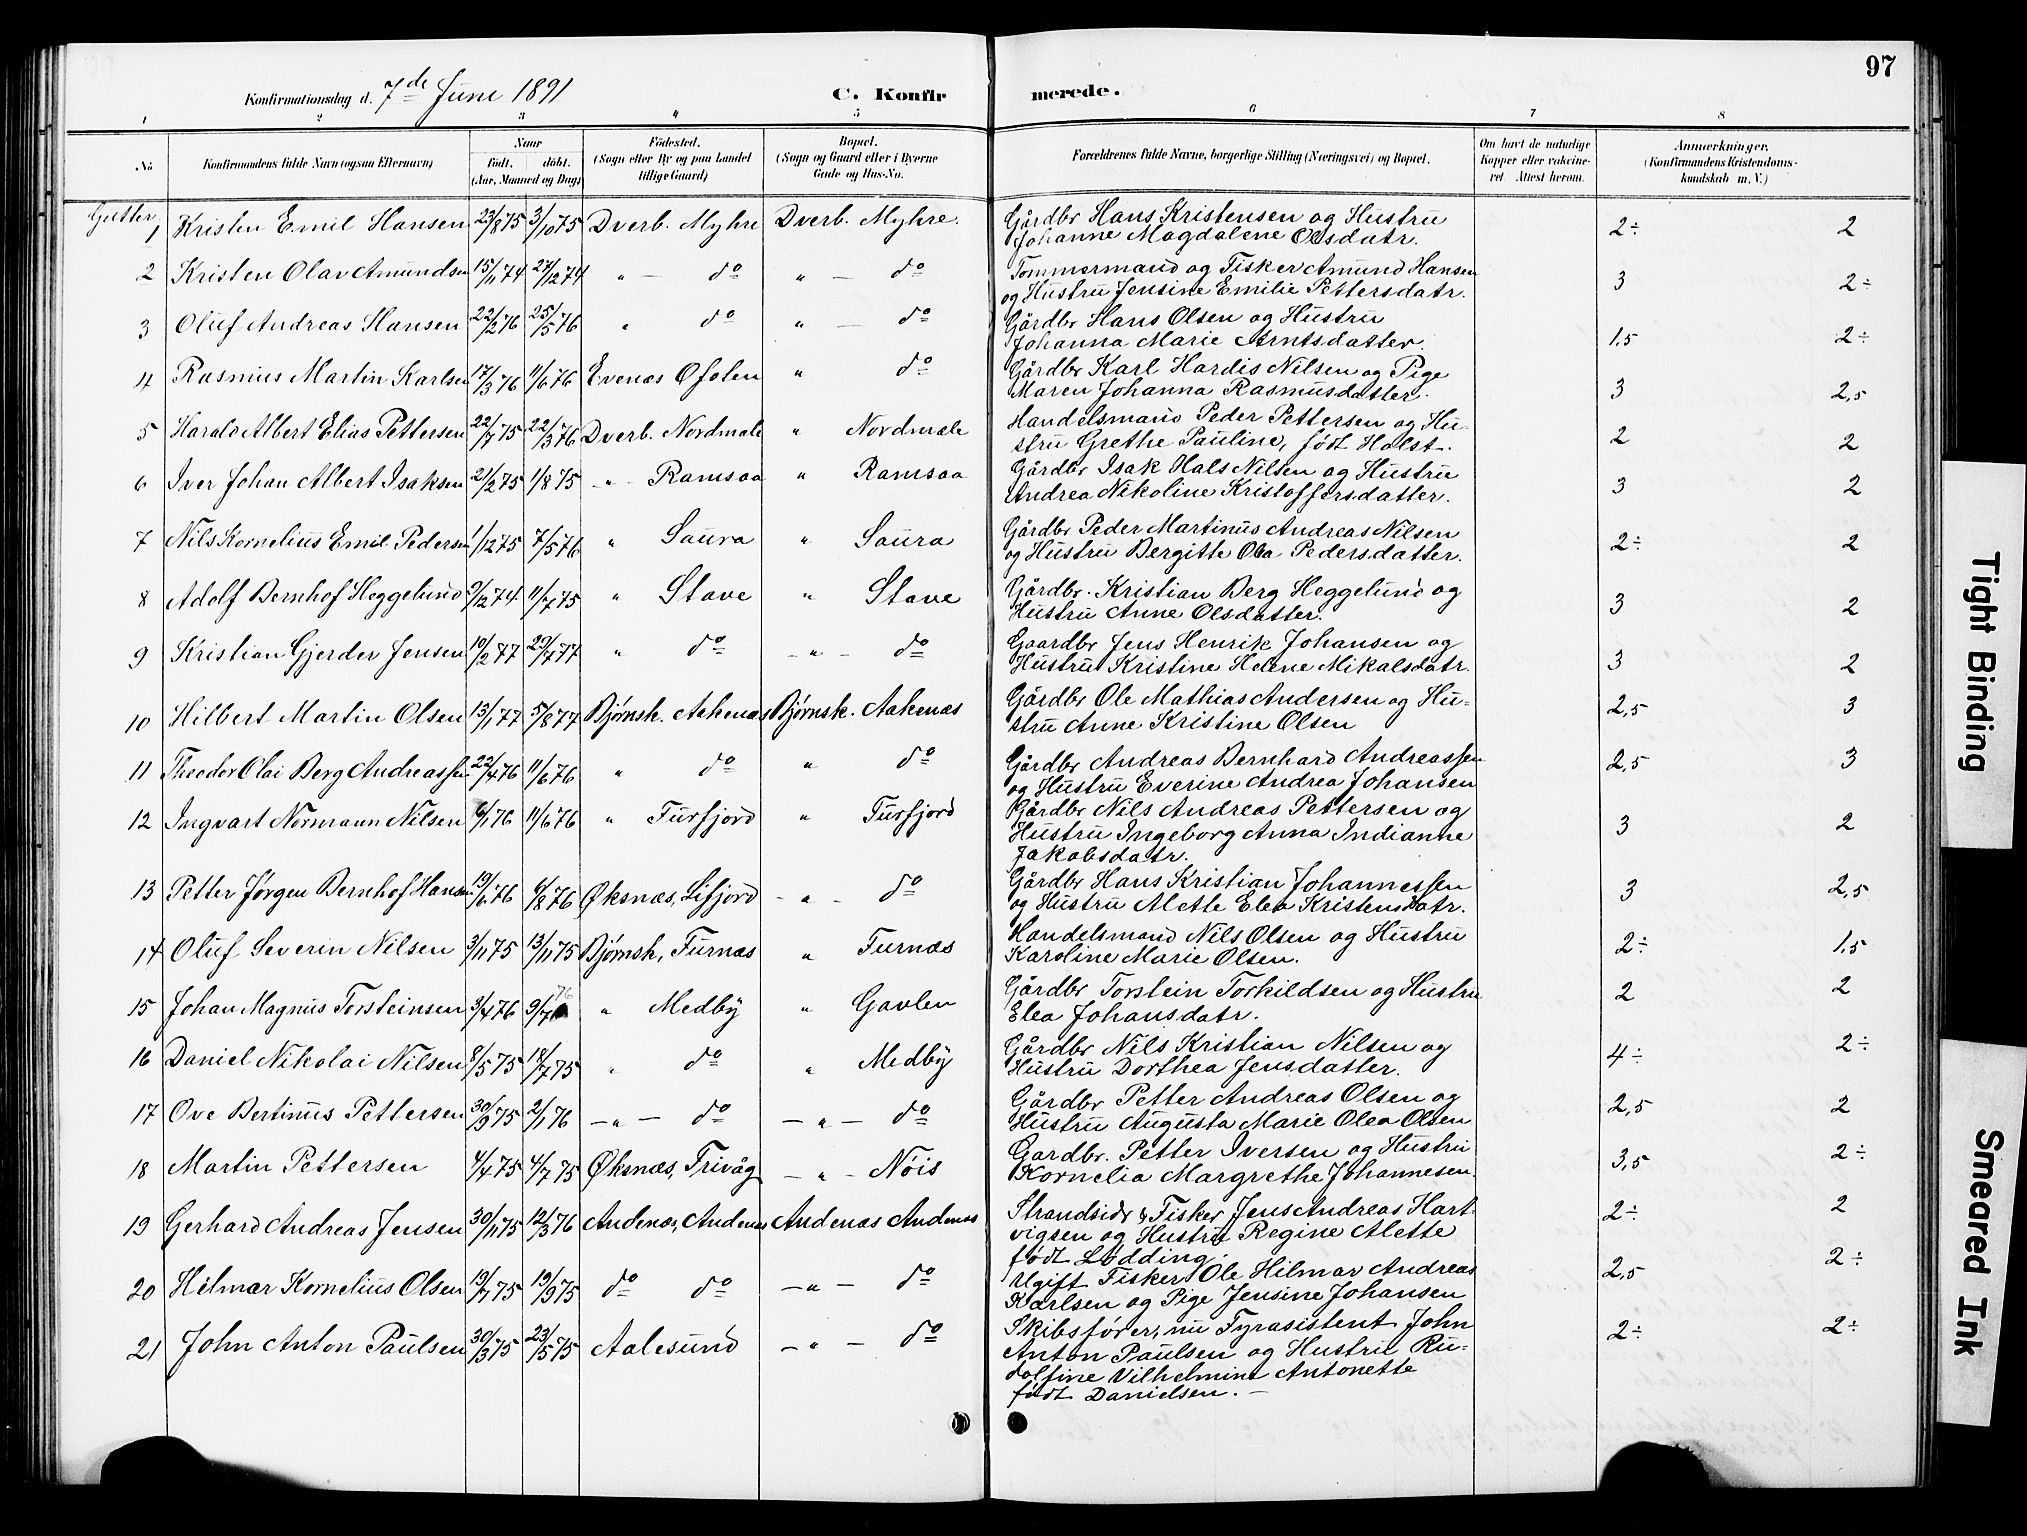 97
Konfirmationsdag d. 7de Juni 1891 C. Konfirmerede.
1 2 3 4 5 6 7 8
No
Konfirmandens fulde Navn (ogsaa Efternavn)
Naar
født. døbt.
(Aar, Maaned og Dag)
Fødested.
(Sogn eller By og paa Landet
tillige Gaard)
Bopæl.
(Sogn og Gaard eller i Byerne
Gade og Hus-No.
Forældrenes fulde Navne, borgerlige Stilling (Næringsvei) og Bopæl.
Om havt de naturlige
Kopper eller vaccine-
ret Attest herom.
Anmærkninger.
(Konfirmandens Kristendoms-
kundskab m. V.)
Gutter
1 Kristen Emil Hansen 23/8 75 3/10 75 Dverb. Myhre Dverb. Myhre. Gårdbr Hans Kristensen og Hustru 2÷ 2
Johanne Magdalene Olsdatr.
2 Kristen Olav Amundsen 15/11 74 27/12 74 " — do " — do Tømmermand og Fisker Amund Hansen 3 2÷
og Hustru Jensine Emilie Pettersdatr.
3 Oluf Andreas Hansen 22/2 76 25/5 76 " do " — do Gårdbr Hans Olsen og Hustru 1.5 2÷
Johanna Marie Arntsdatter.
4 Rasmus Martin Karlsen 17/3 76 11/6 76 Evenæs Ofoten " do Gårdbr Karl Hardis Nilsen og Pige 3 2,5
Maren Johanna Rasmusdatter.
5 Harald Albert Elias Pettersen 22/7 75 22/3 76 Dverb. Nordmæle " Nordmæle Handelsmand Peder Pettersen og Hu- 2 2
stru Grethe Pauline, født Holst.
6 Iver Johan Albert Isaksen 21/2 75 1/8 75 - " - Ramsaa " Ramsaa Gårdbr Isak Hals Nilsen og Hustru 3 2
Andrea Nikoline Kristoffersdatter.
7 Nils Kornelius Emil Pedersen 1/12 75 7/5 76 " Saura " Saura Gårdbr Peder Martinus Andreas Nilsen 2÷ 2
og Hustru Bergitte Ola Pedersdatter.
8 Adolf Bernhof Heggelund 9/12 74 11/7 75 " Stave " Stave Gårdbr. Kristian Berg Heggelund og 3 2
Hustru Anne Olsdatter.
9 Kristian Gjerder Jensen 10/2 77 29/7 77 " do - " - do Gaardbr Jens Henrik Johansen og 3 2
Hustru Kristine Helene Mikalsdatr.
10 Hilbert Martin Olsen 13/1 77 5/8 77 Bjørnsk. Aakenæs Bjørnsk. Aakenæs Gårdbr Ole Mathias Andersen og Hu- 2,5 3
stru Anne Kristine Olsen
11 Theodor Olai Berg Andreassen 22/4 76 11/6 76 " do " do Gårdbr Andreas Bernhard Andreassen 2,5 3
og Hustru Everine Andrea Johansen
12 Ingvart Normann Nilsen 6/1 76 11/6 76 " Furfjord " Furfjord Gårdbr Nils Andreas Pettersen og 3 2
Hustru Ingeborg Anna Indianne
Jakobsdatr.
13 Petter Jørgen Bernhof Hansen 19/6 76 6/8 76 Øksnæs, Lifjord - " - do Gårdbr Hans Kristian Johannessen 3 2,5
og Hustru Alette Elea Kristensdatr.
14 Oluf Severin Nilsen 3/11 75 13/11 75 Bjørnsk, Furnæs " Furnæs Handelsmand Nils Olsen og Hustru 2÷ 1.5
Karoline Marie Olsen.
15 Johan Magnus Torsteinsen 3/4 76 9/7 76 " Medby " Gavlen Gårdbr Torstein Torkildsen og Hustru 2 2
Elea Johansdatr.
16 Daniel Nikolai Nilsen 8/5 75 18/7 75 " do " Medby Gårdbr Nils Kristian Nilsen og 4÷ 2÷
Hustru Dorthea Jensdatter.
17 Ove Bertinus Pettersen 30/9 75 2/1 76 - " - do - " - do Gårdbr Petter Andreas Olsen og 2,5 2
Hustru Augusta Marie Olea Olsen
18 Martin Pettersen 4/4 75 4/7 75 Øksnæs, Trivåg - " - Nöis Gårdbr. Petter Iversen og Hustru 3,5 2÷
Kornelia Margrethe Johannesen.
19 Gerhard Andreas Jensen 30/11 75 12/3 76 Andenæs, Andenæs Andenæs Andenæs Strandsidr & Fisker Jens Andreas Hart- 2÷ 2
vigsen og Hustru Regine Alette
født Lødding.
20 Hilmar Kornelius Olsen 19/7 75 19/9 75 do do - " - do Ugift Fisker Ole Hilmar Andreas 2,5 2÷
Karlsen og Pige Jensine Johansen
21 John Anton Paulsen 30/3 75 23/5 75 Aalesund - " - do Skibsfører, nu Fyrasistent John 2÷ 2÷
Anton Paulsen og Hustru Ru-
dolfine Vilhelmine Antonette
født Danielsen. —
Tight Binding
Smeared Ink